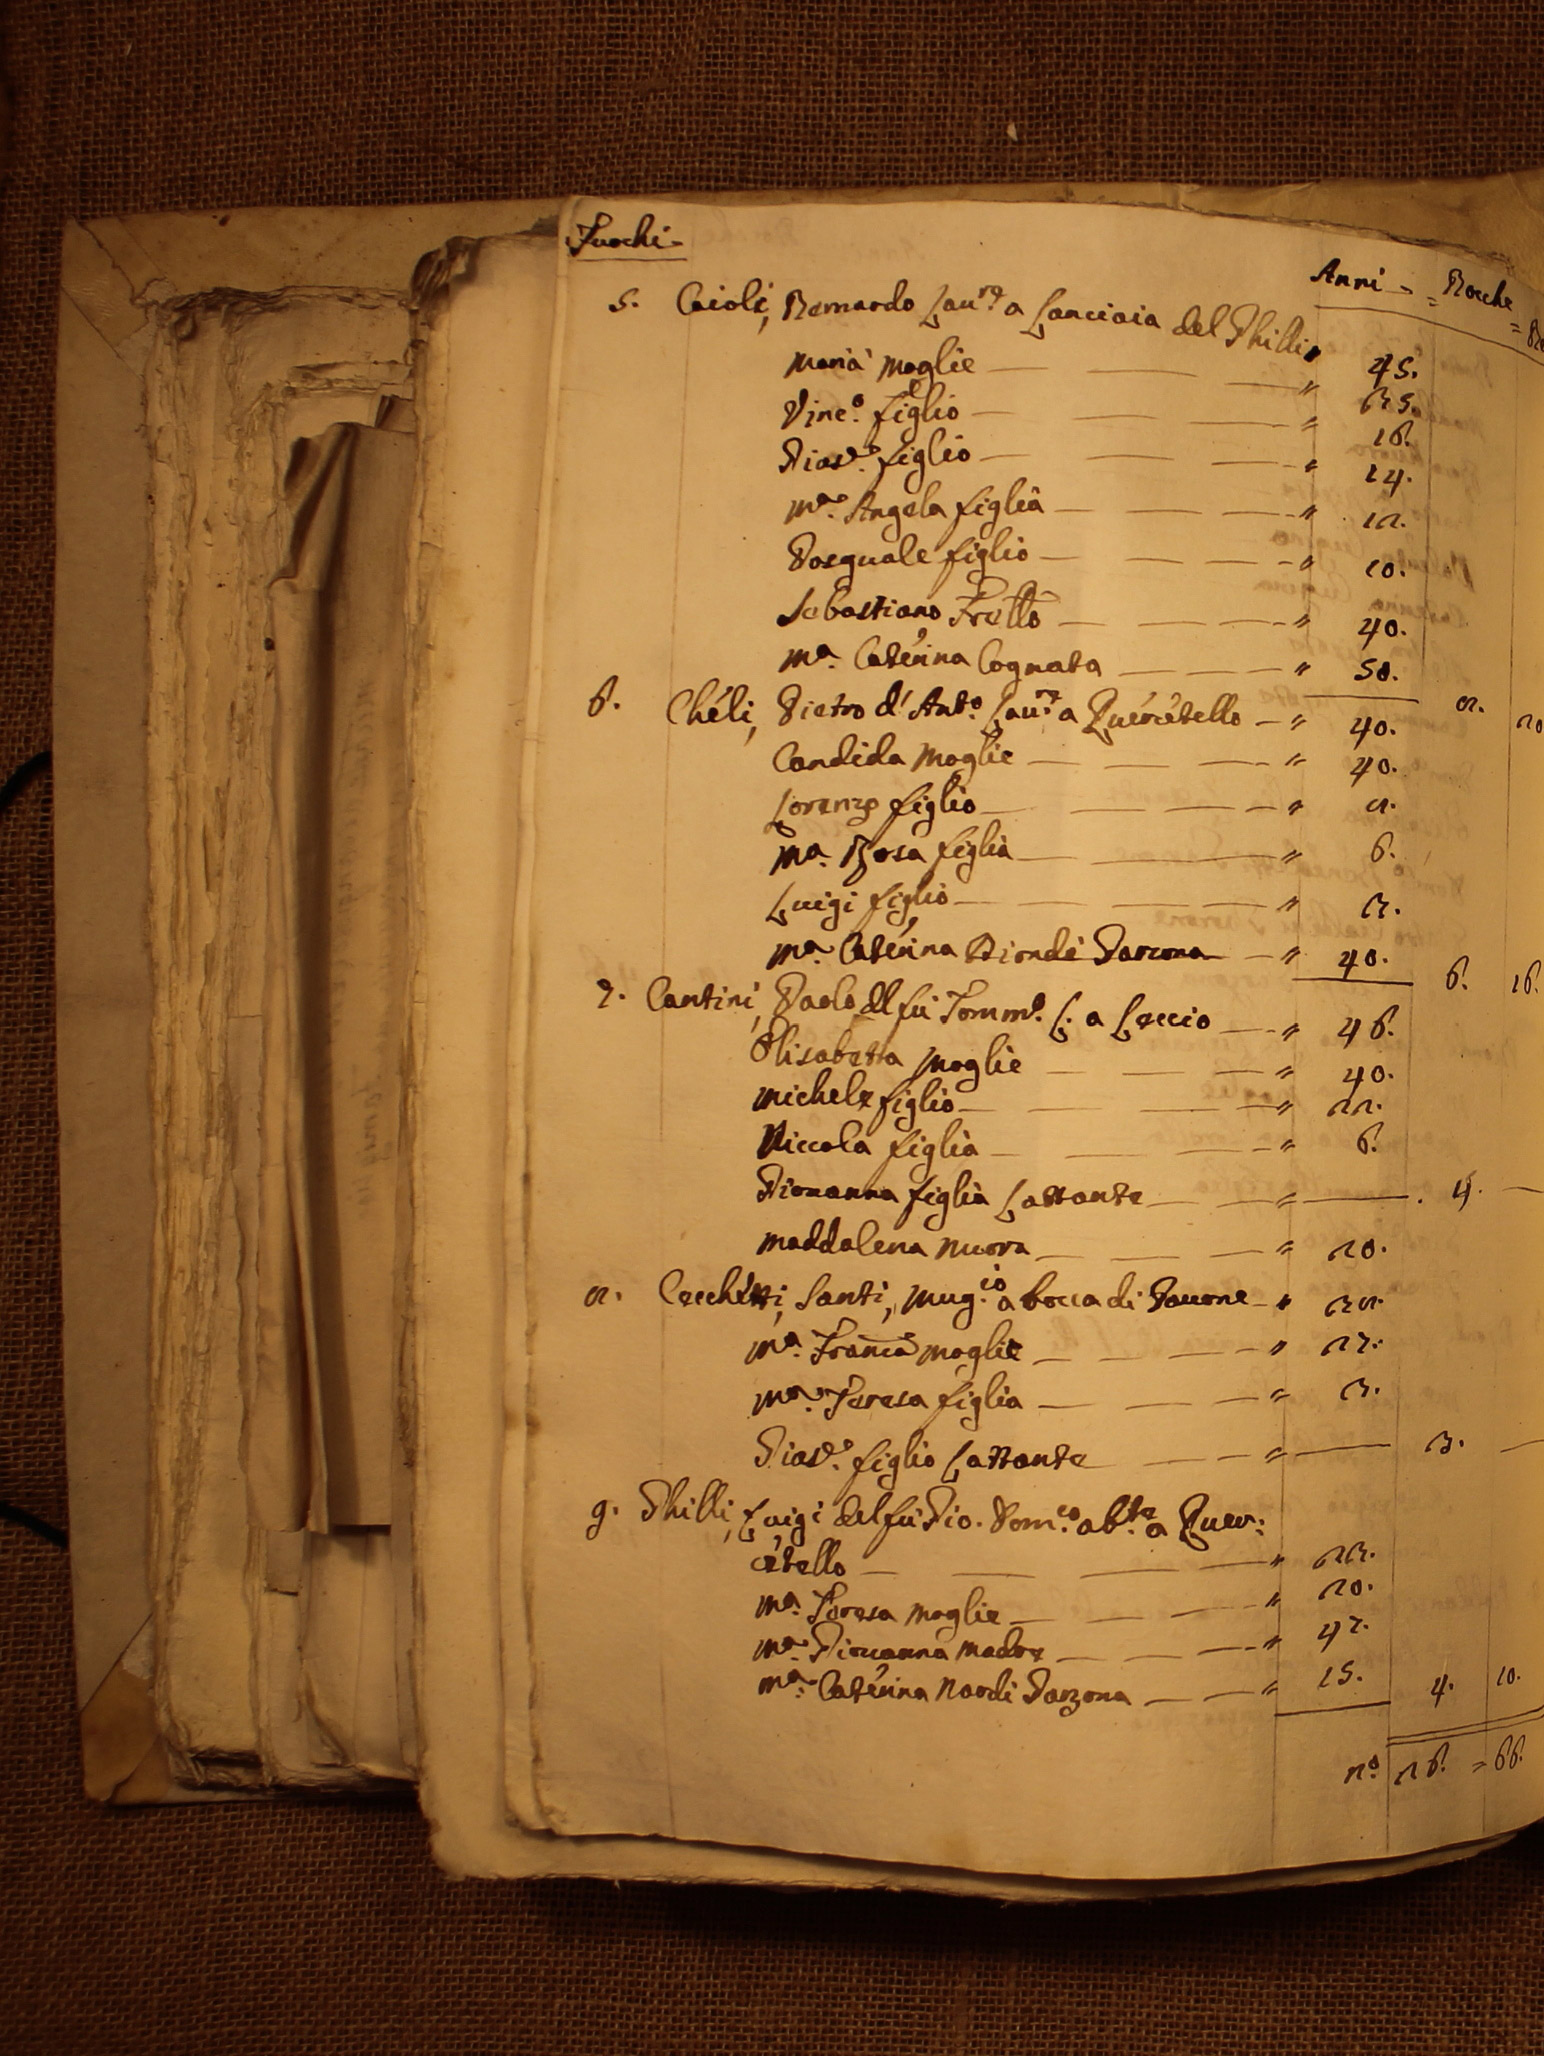 Fuochi
Anni = Bocche =
5. Caioli, Bernardo Lau.re a Lanciaia del Ghilli " 45.
Maria Moglie " 35.
Vinc.o figlio " 16.
Giov. figlio " 14.
M.a Angela figlia " 12.
Pasquale figlio " 10.
Sebastiano Frello " 40.
M.a Caterina Cognata " 50.
8. 20
6. Cheli, Pietro d'Ant.o Lau.re a Quercetello " 40.
Candida Moglie " 40.
Lorenzo figlio " 8.
M.a Rosa figlia " 6.
Luigi figlio " 3.
M.a Caterina Garzona " 40.
6. 16.
7. Cantini, Paolo del fù Tomm.o L. a Leccio " 46.
Elisabetta Moglie " 40.
Michele figlio " 22.
Niccola figlia " 6.
Giovanna figlia Lattante " 4.
Maddalena Nuora " 20.
8. Cecchetti, Santi, Mug.io a bocca di Pavone " 38.
M.a Fran.ca Moglie " 27.
M.a Teresa figlia " 3.
Giov. figlio Lattante " 3.
9. Ghilli, Luigi del fù Gio. Dom.co ab.te a Quer:
cetello " 23.
M.a Teresa Moglie " 20.
M.a Giovanna Madre " 47.
M.a Caterina Nardi Garzona " 15.
4. 10.
n.o 26. = 66.